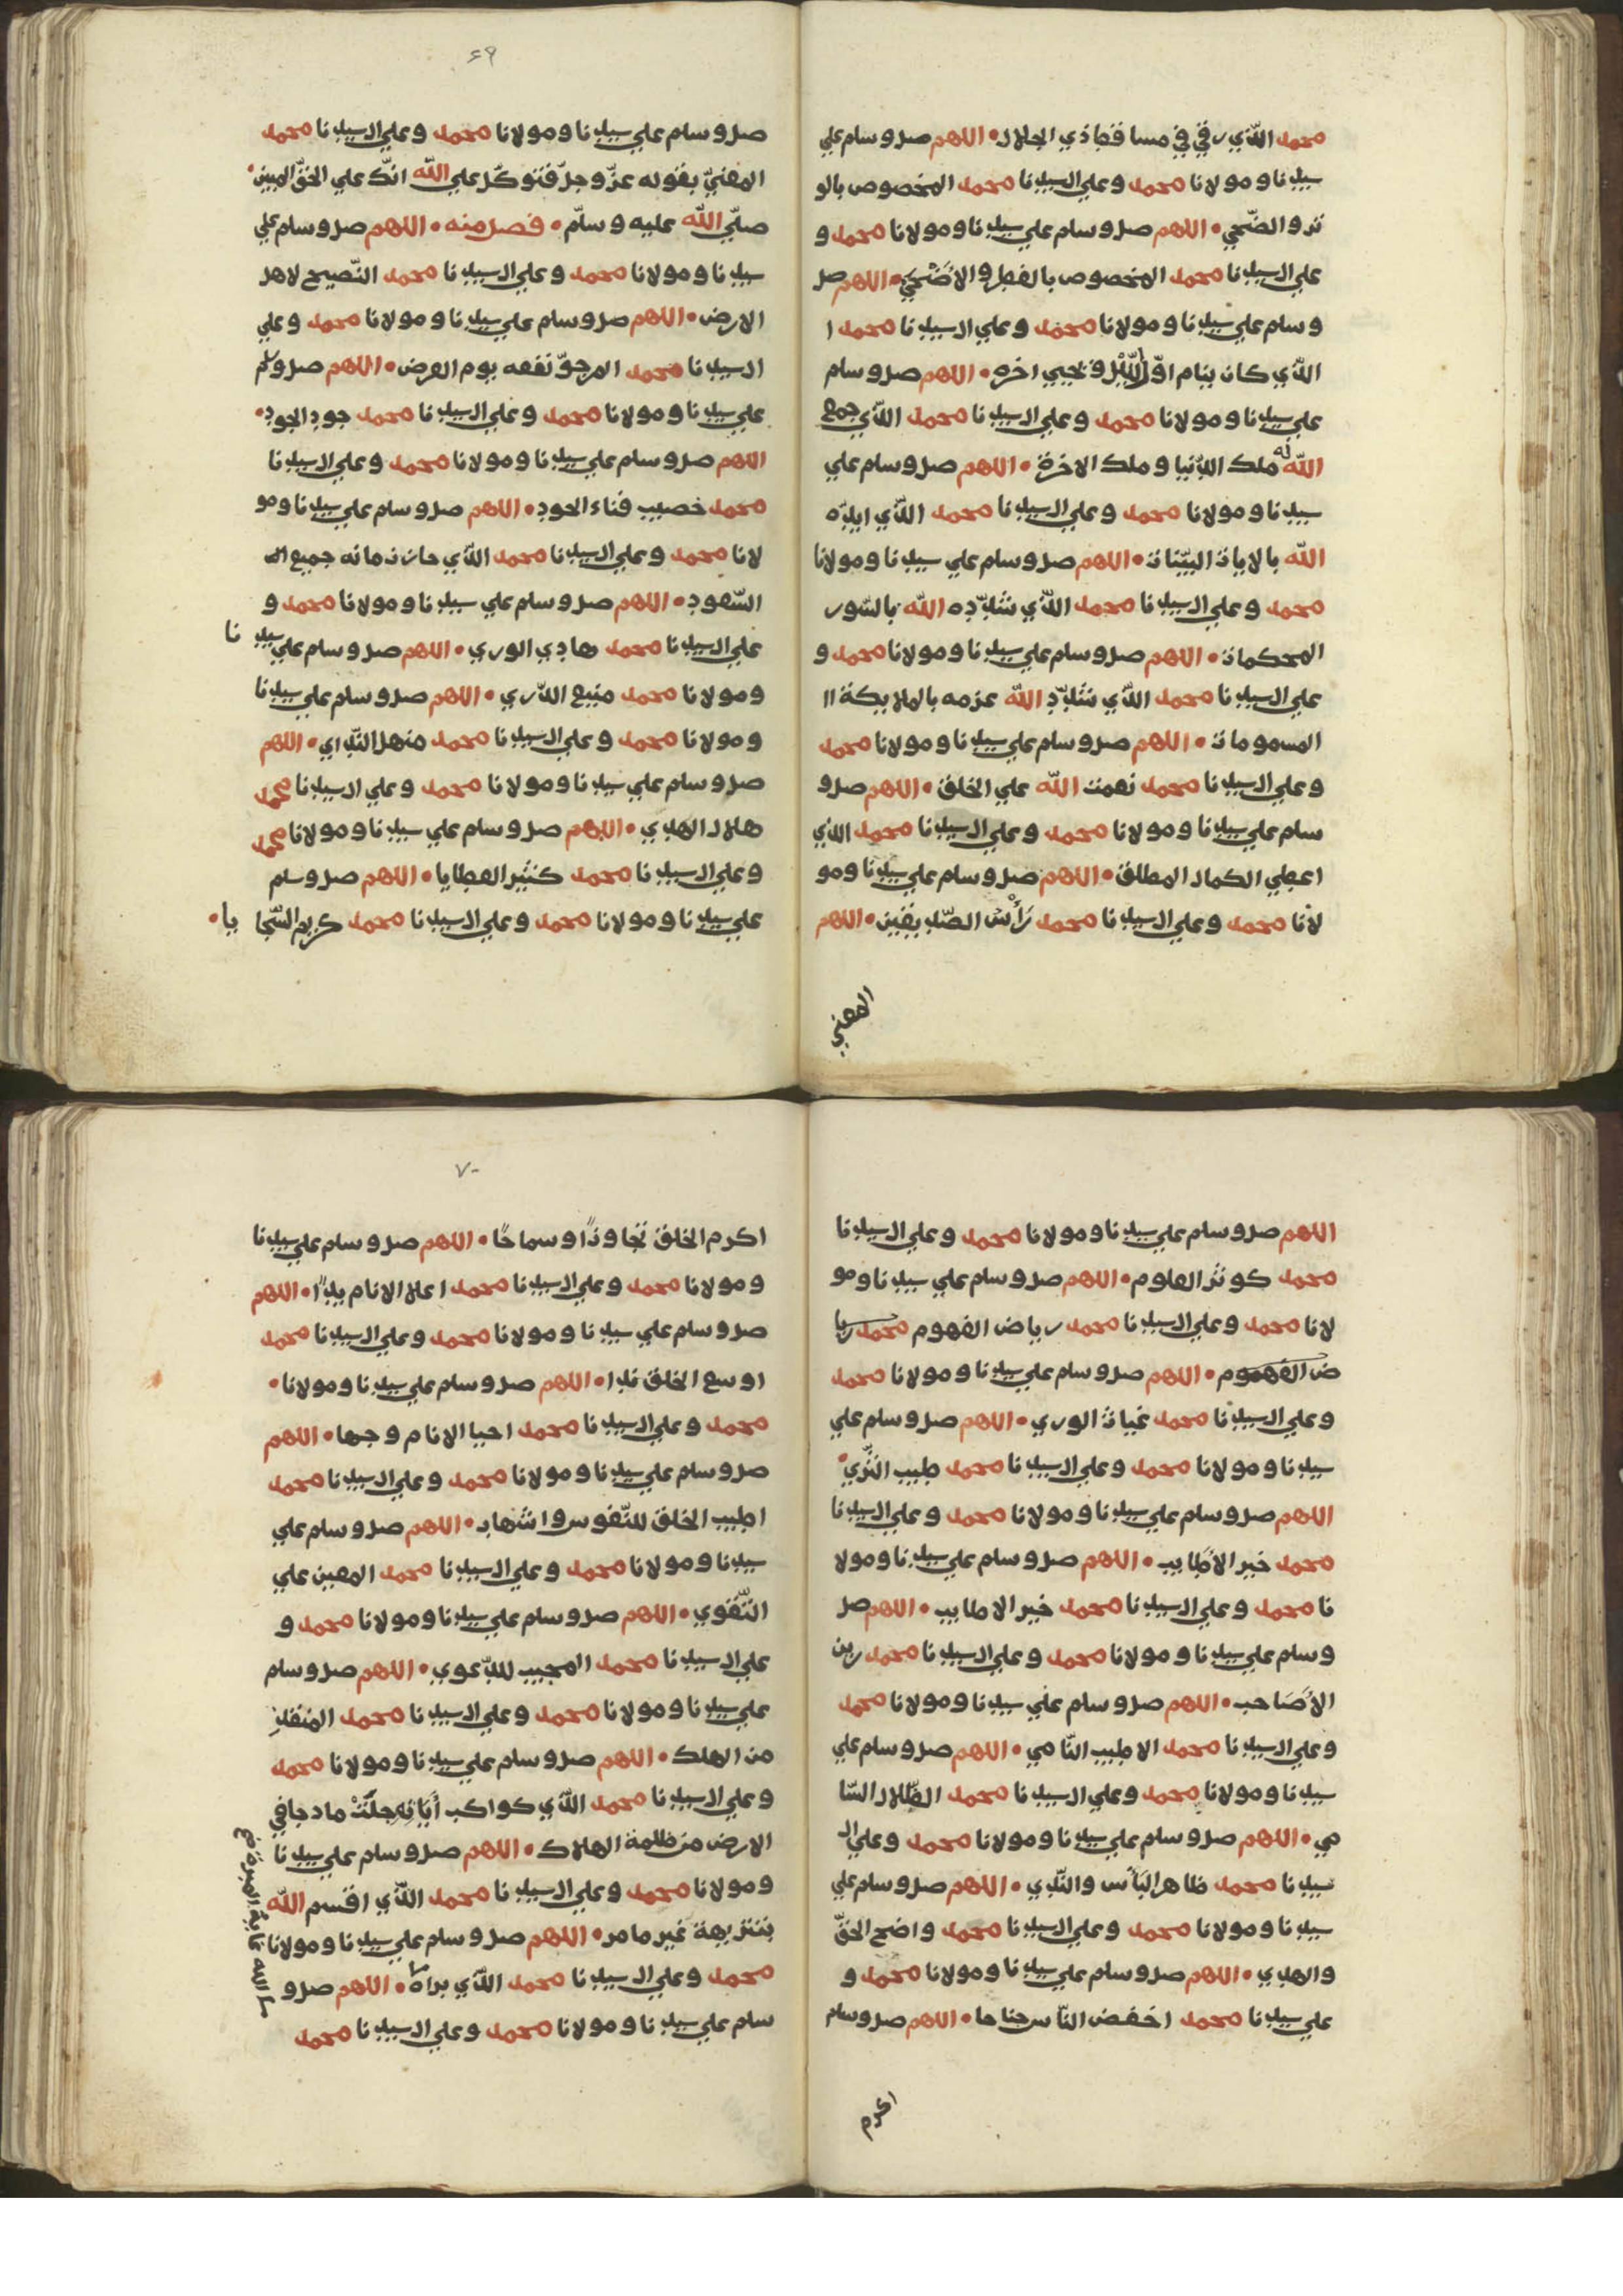 محمد الّذي رقي في مسا فة ذي الجلال • اللهم صل وسلم علي
سيدنا ومولانا محمد وعلي ال سيدنا محمد المخصوص بالو
تر والضّحي • اللهم صل وسلم علي سيدنا ومولانا محمد و
علي ال سيدنا محمد المخصوص بالفطر والاَضْحَيَ • اللهم صل
وسلم علي سيدنا ومولانا محمد وعلي ال سيدنا محمد ا
الذي كان ينام اوّل اللّيْل و يحيي اخره • اللهم صل وسلم
علي سيدنا ومولانا محمد وعلي ال سيدنا محمد الّذي جمع
الله له ملك الدّنيا وملك الاخرة • اللهم صل وسلم علي
سيدنا ومولانا محمد وعلي ال سيدنا محمد الّذي ايدّه
الله بالايات البيّنات • اللهم صل وسلم علي سيدنا ومولانا
محمد وعلي ال سيدنا محمد الّذي شدّده الله بالسّور
المحكمات • اللهم صل وسلم علي سيدنا ومولانا محمد و
علي ال سيدنا محمد الّذي شدّد الله عزمه بالملايكة اا
المسومات • اللهم صل وسلم علي سيدنا ومولانا محمد
وعلي ال سيدنا محمد نعمت الله علي الخلق • اللهم صل و
سلم علي سيدنا ومولانا محمد وعلي ال سيدنا محمد الذي
اعطي الكمال المطلق • اللهم صل وسلم علي سيدنا ومو
لانا محمد وعلي ال سيدنا محمد رَأْسْ الصّديقين • اللهم
المعني
٦٩
صل وسلم علي سيدنا ومولانا محمد وعلي ال سيدنا محمد
المعنيّ بقوله عزّ وجلّ فتوكّل علي الله انّك علي الحقّ المبين •
صلّي الله عليه وسلّم • فصل منه • اللهم صل وسلم علي
سيدنا ومولانا محمد وعلي ال سيدنا محمد النّصيح لاهل
الارض • اللهم صل وسلم علي سيدنا ومولانا محمد وعلي
ال سيدنا محمد المرجوّ نفعه يوم العرض • اللهم صل وسلم
علي سيدنا ومولانا محمد وعلي ال سيدنا محمد جود الجود •
اللهم صل وسلم علي سيدنا ومولانا محمد وعلي ال سيدنا
محمد خصيب فناء الجود • اللهم صل وسلم علي سيدنا ومو
لانا محمد وعلي ال سيدنا محمد الّذي حاز زمانه جميع ال
السّعود • اللهم صل وسلم علي سيدنا ومولانا محمد و
علي ال سيدنا محمد هادي الوري • اللهم صل وسلم علي سيد نا
ومولانا محمد منبع الذري • اللهم صل وسلم علي سيدنا
ومولانا محمد وعلي ال سيدنا محمد منهل النّداي • اللهم
صل وسلم علي سيدنا ومولانا محمد وعلي ال سيدنا محمد
هلال الهدي • اللهم صل وسلم علي سيدنا ومولانا محمد
وعلي ال سيدنا محمد كثير العطايا • اللهم صل وسلم
علي سيدنا ومولانا محمد وعلي ال سيدنا محمد كريم السّجا يا •
اللهم صل وسلم علي سيدنا ومولانا محمد وعلي ال سيدنا
محمد كوثر العلوم • اللهم صل وسلم علي سيدنا ومو
لانا محمد وعلي ال سيدنا محمد رياض الفهوم محمد ريا
ض الفهموم • اللهم صل وسلم علي سيدنا ومولانا محمد
وعلي ال سيدنا محمد غياث الوري • اللهم صل وسلم علي
سيدنا ومولانا محمد وعلي ال سيدنا محمد طيب الثّري •
اللهم صل وسلم علي سيدنا ومولانا محمد وعلي ال سيدنا
محمد خير الاَطايب • اللهم صل وسلم علي سيدنا ومولا
نا محمد وعلي ال سيدنا محمد خير الاطايب • اللهم صل
وسلم علي سيدنا ومولانا محمد وعلي ال سيدنا محمد زين
الاَصَاحب • اللهم صل وسلم علي سيدنا ومولانا محمد
وعلي ال سيدنا محمد الاطيب النّامي • اللهم صل وسلم علي
سيدنا ومولانا محمد وعلي ال سيدنا محمد الظّلال السّا
مي • اللهم صل وسلم علي سيدنا ومولانا محمد وعلي ال
سيدنا محمد ظاهر البَأس والنّدي • اللهم صل وسلم علي
سيدنا ومولانا محمد وعلي ال سيدنا محمد واضح الحقّ
والهدي • اللهم صل وسلم علي سيدنا ومولانا محمد و
علي سيدنا محمد اخفض النّاس جناحا • اللهم صل وسلم
اكرم
٧٠
اكرم الخلق تجاوزًا وسماحًا • اللهم صل وسلم علي سيدنا
ومولانا محمد وعلي ال سيدنا محمد اعلا الانام يدًا • اللهم
صل وسلم علي سيدنا ومولانا محمد وعلي ال سيدنا محمد
اوسع الخلق ندا • اللهم صل وسلم علي سيدنا ومولانا •
محمد وعلي ال سيدنا محمد احيا الانام وجها • اللهم
صل وسلم علي سيدنا ومولانا محمد وعلي ال سيدنا محمد
اطيب الخلق للنّفوس واشهاد • اللهم صل وسلم علي
سيدنا ومولانا محمد وعلي ال سيدنا محمد المعين علي
التّقوي • اللهم صل وسلم علي سيدنا ومولانا محمد و
علي ال سيدنا محمد المجيب للدّعوي • اللهم صل وسلم
علي سيدنا ومولانا محمد وعلي ال سيدنا محمد المنقذ
من الهلك • اللهم صل وسلم علي سيدنا ومولانا محمد
وعلي ال سيدنا محمد الّذي كواكب أيَاتِهِ جلَتْ ما دجا في
الارض من ظلمة الهلاك • اللهم صل وسلم علي سيدنا
ومولانا محمد وعلي ال سيدنا محمد الّذي اقسم الله
بتنزيهة غير ما مر • اللهم صل وسلم علي سيدنا ومولانا
محمد وعلي ال سيدنا محمد الّذي براه ما • اللهم صل و
سلم علي سيدنا ومولانا محمد وعلي ال سيدنا محمد